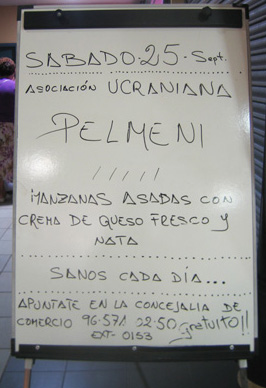 SABADO·25·Sept.
ASOCIACIÓN UCRANIANA
PELMENI
/////
MANZANAS ASADAS CON
CREMA DE QUESO FRESCO Y
NATA
SANOS CADA DÍA...
APÚNTATE EN LA CONCEJALIA DE
COMERCIO 96·571 22·50 gratuito!!
EXT- 0153